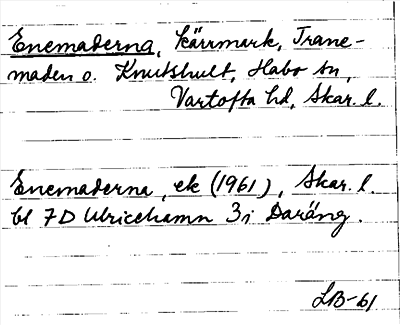 Enemaderna, kärrmark, Trane-
maden o. Knutshult, Habo sn,
Vartofta hd, Skar. l.
Enemaderna, ek (1961), Skar. l.
bl 7D Ulricehamn 3i Daräng.
LB-61